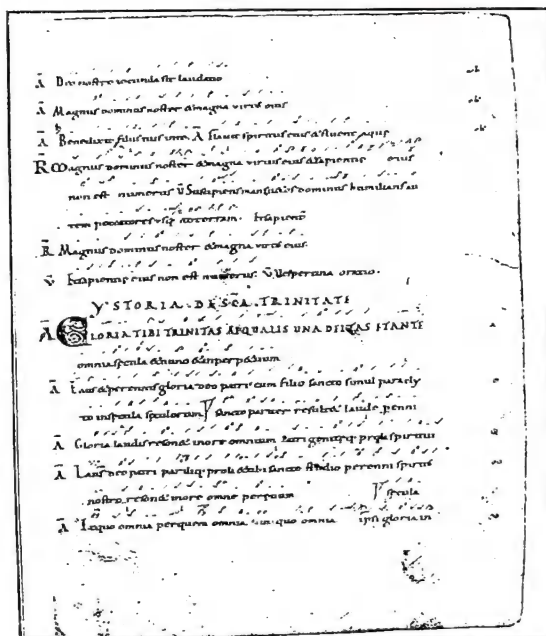 Ā Deo nostro iocunda sit laudatio
Ā Magnus dominus noster & magna virtus eius
Ā Benedixit filiis tuis in te. Ā Flavit spiritus eius & fluent aquę
R Magnus dominus noster & magna virtus eius & sapientię eius
non est numerus V Suscipiens mansuetos dominus humilians au
tem peccatores usq; ad terram. Et sapientię
R Magnus dominus noster & magna virtus eius.
V Et sapientię eius non est numerus. V Vespertina oratio.
YSTORIA DE SCA TRINITATE
Ā GLORIA TIBI TRINITAS AEQUALIS UNA DEITAS ET ANTE
omnia secula & nunc & in perpetuum
Ā Laus & perennis gloria deo patri cum filio sancto simul paracly
to in secula seculorum
Ā Gloria laudis reson& in ore omnium Patri genitęq; proli spiritui
sancto pariter result& laude perhenni
Ā Laus deo patri parilique proli & tibi sancte studio perenni spiritus
nostro reson& in ore omne per ęvum
Ā Ex quo omnia per quem omnia in quo omnia ipsi gloria in
secula